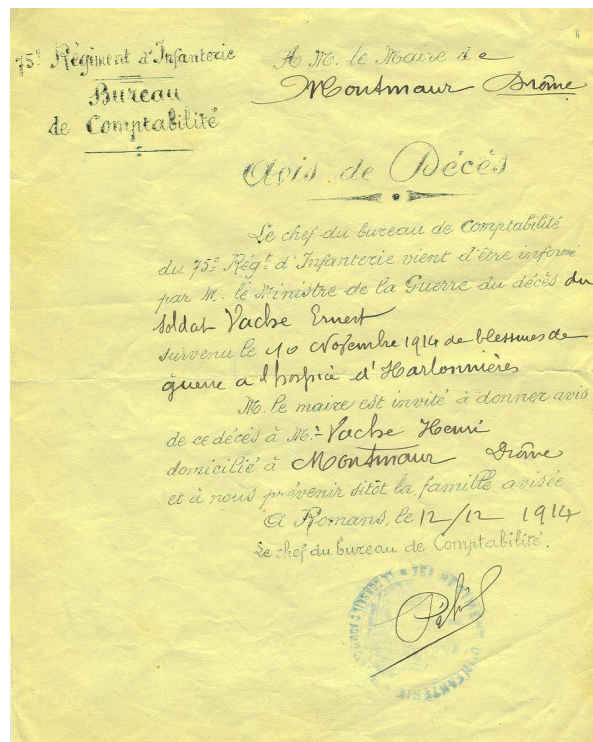 75e Régiment d'Infanterie
Bureau
de Comptabilité
A M. le Maire de
Montmaur Drôme
Avis de Décés
Le chef du bureau de Comptabilité
du 75e Régt d'Infanterie vient d'être informé
par M. le Ministre de la Guerre du décès du
soldat Vache Ernest
survenu le 10 Novembre 1914 de blessures de
guerre a l'hospice d'Harbonnières
M. le maire est invité à donner avis
de ce décès à Mr Vache Henri
domicilié à Montmaur Drôme
et à nous prévenir sitôt la famille avisée
A Romans, le 12/12 1914
Le chef du bureau de Comptabilité.
75E REGIMENT D'INFANTERIE